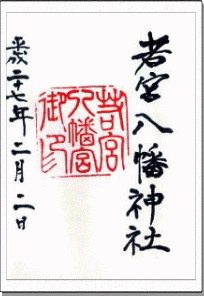 若宮八幡神社
若宮八幡宮御印
平成二十七年二月二日